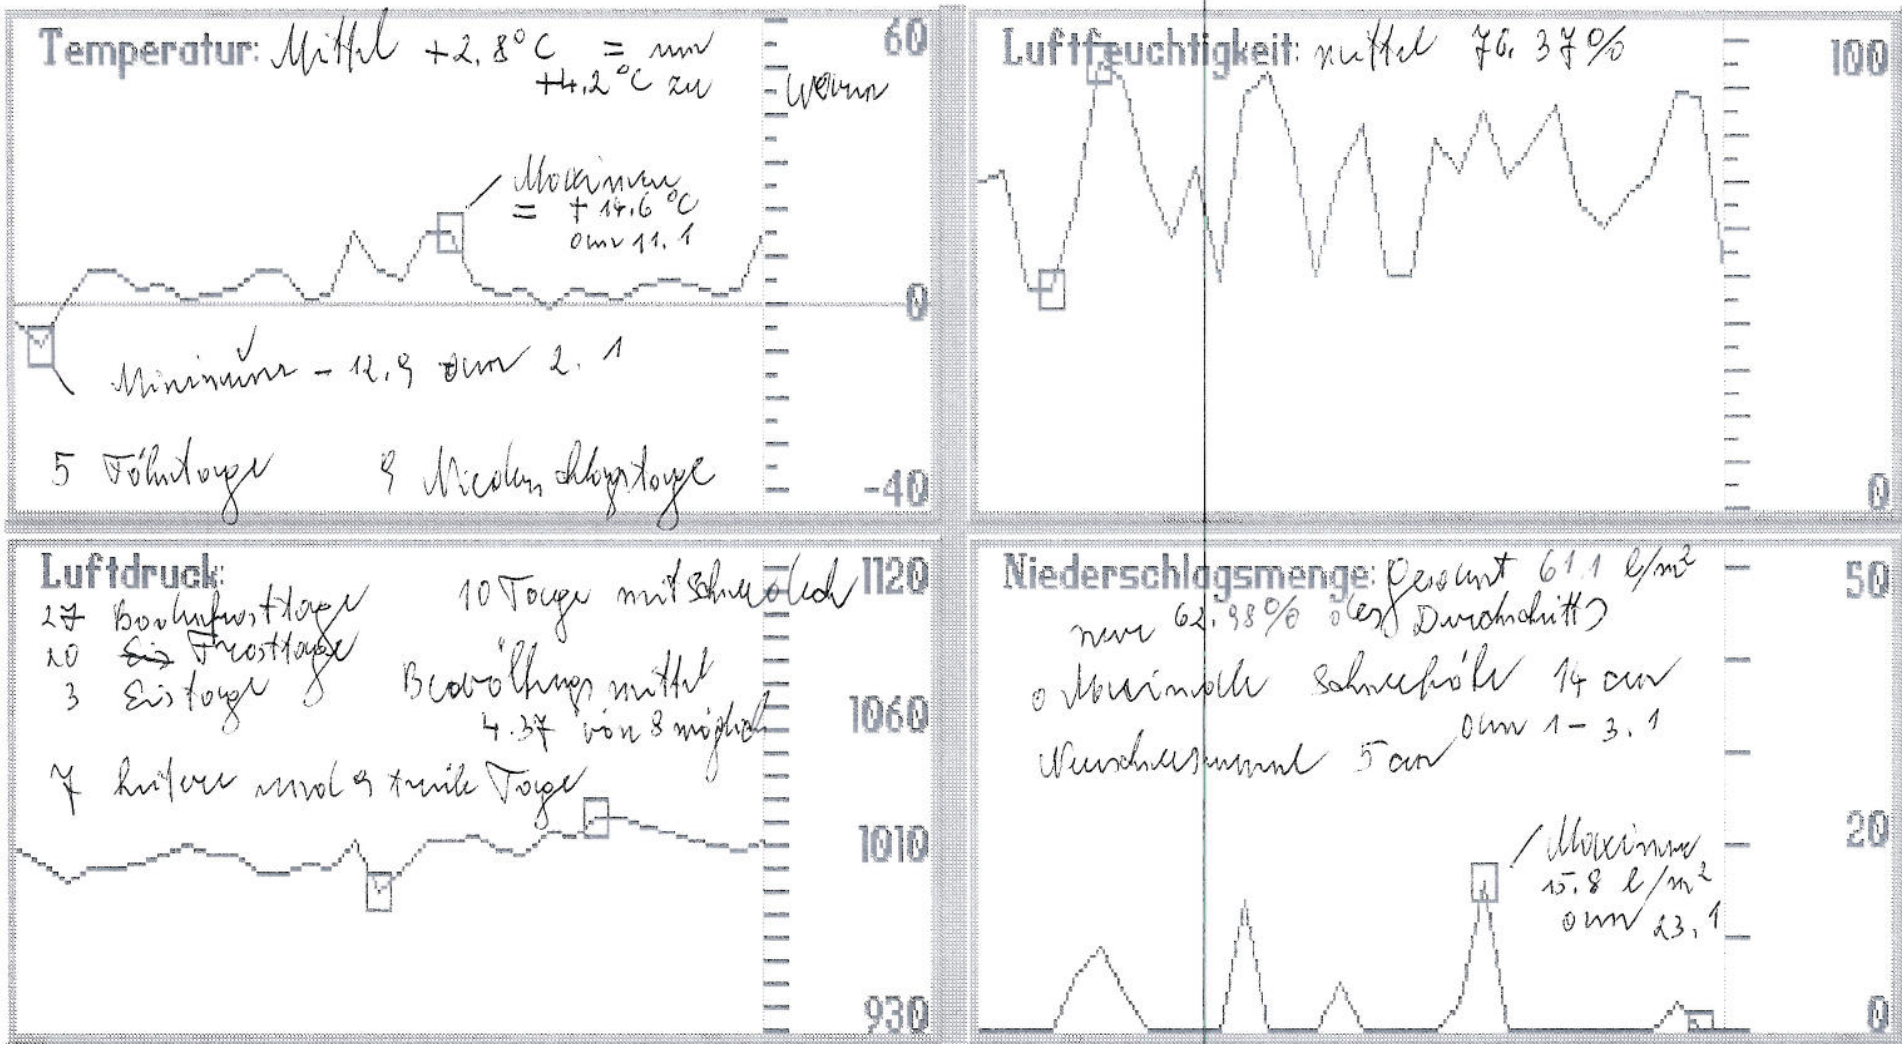 Temperatur: Mittel +2.8°C = um
+4.2°C zu warm
60
Maximum
= +14.6°C
am 11.1
0
Minimum -12.9 am 2.1
5 Föhntage 9 Niederschlagstage
-40
Luftfeuchtigkeit: mittel 76.37%
100
0
Luftdruck:
1120
27 Bodenfrosttage
10 Tage mit Schneedecke
20 Frosttage
3 Eistage
Bewölkungsmittel
4.37 von 8 möglich
1060
7 heitere und 9 trübe Tage
1010
930
Niederschlagsmenge: Gesamt 61.1 l/m²
50
nur 62.98% des Durchschnitts
Maximale Schneehöhe 14 cm
am 1-3.1
Neuschneesumme 5 cm
20
Maximum
15.8 l/m²
am 23.1
0